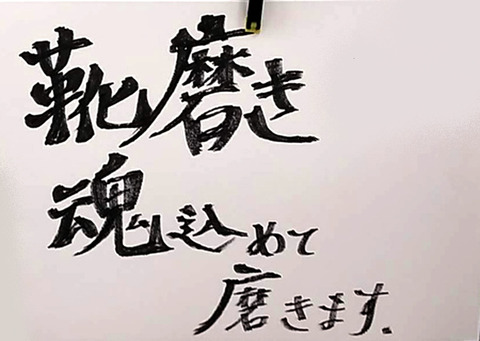 靴磨き
魂込めて
磨きます.